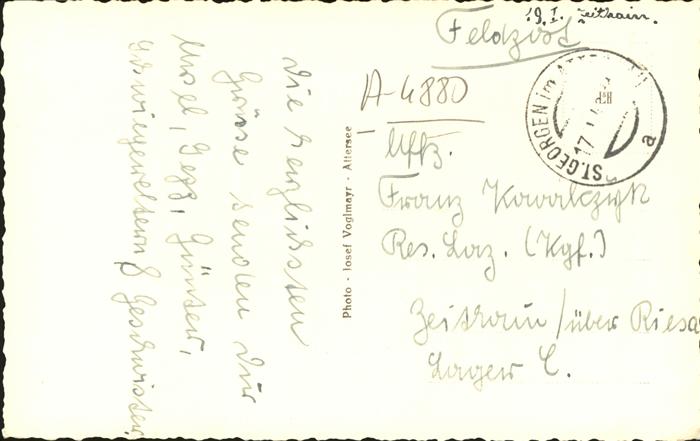 19. I. Zeithain.
Feldpost
ST. GEORGEN im
17. I.
a
A-4880
Uffz.
Franz Kowalczyk
Res. Laz. (Kgf.)
Zeithain / über Riesa
Lager C.
Photo - Josef Voglmayr - Attersee
Die herzlichsten
Grüsse senden Dir
Ursel, Günter,
Schwiegereltern & Geschwister